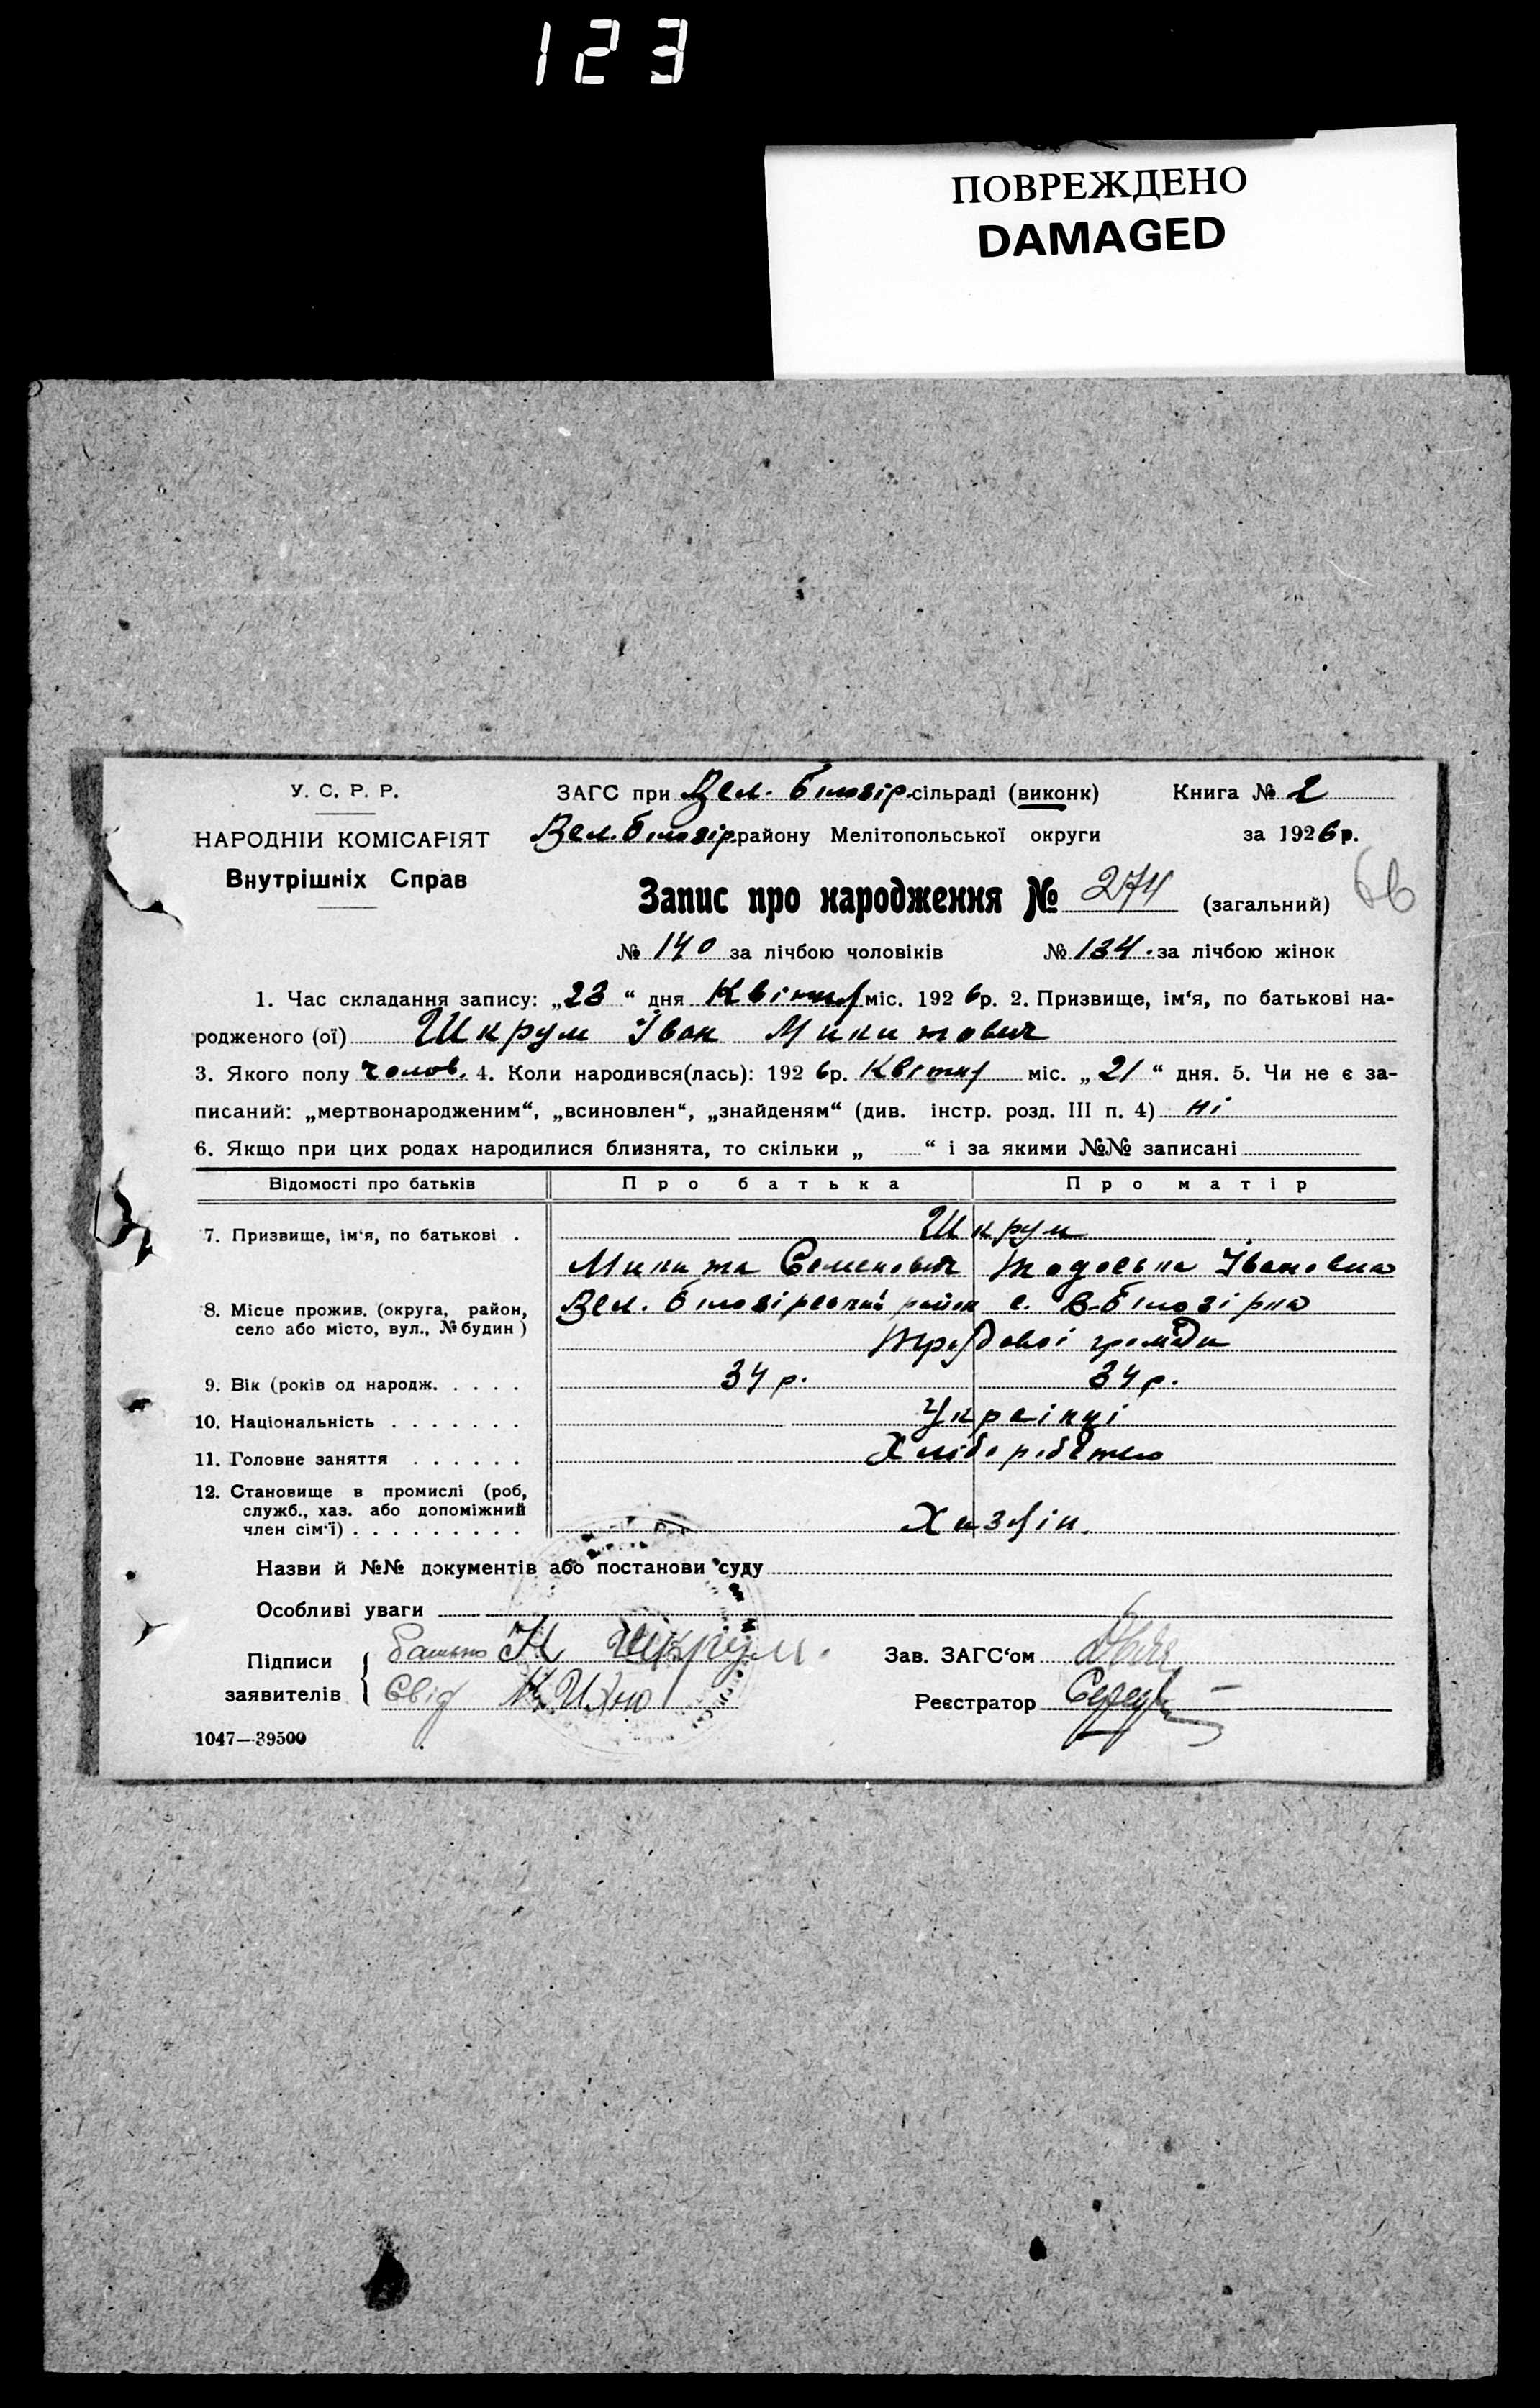 123
ПОВРЕЖДЕНО
DAMAGED
У. С. Р. Р.
НАРОДНІЙ КОМІСАРІЯТ
Внутрішніх Справ
ЗАГС при Вел. Білозір. сільраді (виконк) Книга № 2
Вел. Білозір. району Мелітопольської округи за 1926 р.
Запис про народження № 274 (загальний) 66
№ 140 за лічбою чоловіків № 134. за лічбою жінок
1. Час складання запису: „23“ дня Квітня міс. 1926 р. 2. Призвище, ім‘я, по батькові на-
родженого (ої) Шкрум Іван Микитович
3. Якого полу чолов. 4. Коли народився(лась): 1926 р. Квітня міс. „21“ дня. 5. Чи не є за-
писаний: „мертвонародженим“, „всиновлен“, „знайденям“ (див. інстр. розд. III п. 4) ні
6. Якщо при цих родах народилися близнята, то скільки „ “ і за якими №№ записані
Відомості про батьків Про батька Про матір
7. Призвище, ім‘я, по батькові . Шкрум
Микита Семенович Тодоська Івановна
8. Місце прожив. (округа, район, село або місто, вул., № будин) Вел. Білозірський район с. В-Білозірка
Трудової громади
9. Вік (років од народж. . . . . 34 р. 34 р.
10. Національність . . . . . . . Українці
11. Головне заняття . . . . . . Хлібо робство
12. Становище в промислі (роб,
служб., хаз. або допоміжний
член сім‘ї) . . . . . . . . . Хазяїн.
Назви й №№ документів або постанови суду
Особливі уваги
Підписи заявителів { батько Н Шкрум. Зав. ЗАГС‘ом
Свід Реєстратор
1047—39500